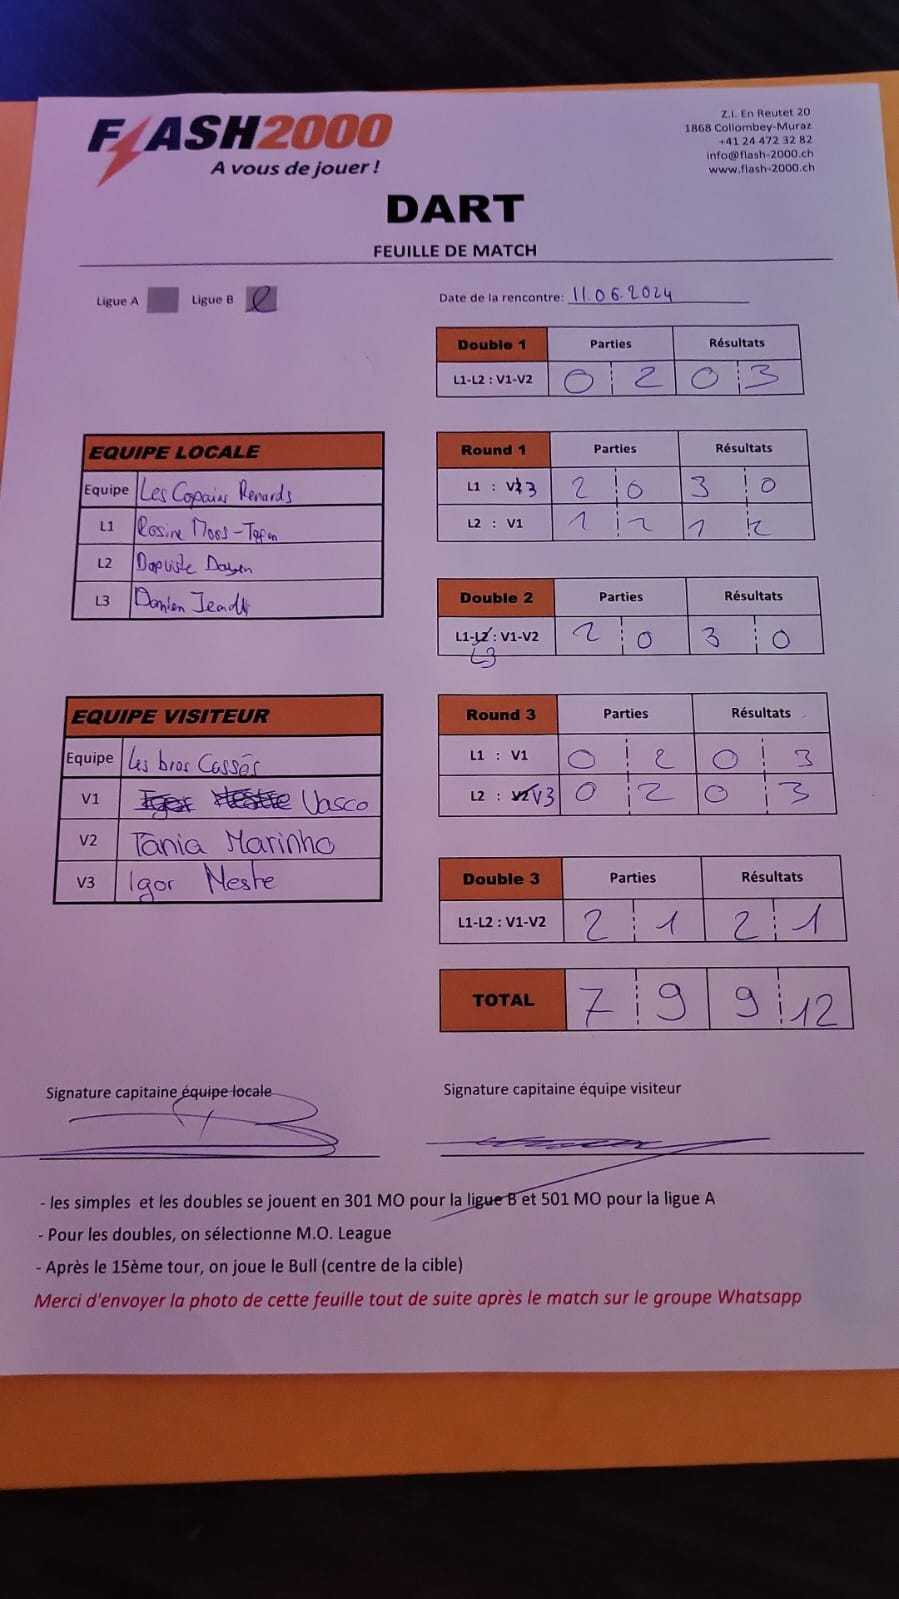 FLASH2000
A vous de jouer !
Z.I. En Reutet 20
1868 Collombey-Muraz
+41 24 472 32 82
info@flash-2000.ch
www.flash-2000.ch
DART
FEUILLE DE MATCH
Ligue A Ligue B
Date de la rencontre: 11.06.2024
Double 1 Parties Résultats
L1-L2 : V1-V2 0 2 0 3
EQUIPE LOCALE
Equipe Les Copains Renards
L1 Rosine
L2
L3 Damien
Round 1 Parties Résultats
L1 : V3 2 0 3 0
L2 : V1 1 2 1 2
Double 2 Parties Résultats
L1-L2 : V1-V2 2 0 3 0
L3
EQUIPE VISITEUR
Equipe Les bras Cassés
V1 Igor Mestre Vasco
V2 Tânia Marinho
V3 Igor Mestre
Round 3 Parties Résultats
L1 : V1 0 2 0 3
L2 : V2 V3 0 2 0 3
Double 3 Parties Résultats
L1-L2 : V1-V2 2 1 2 1
TOTAL 7 9 9 12
Signature capitaine équipe locale
Signature capitaine équipe visiteur
- les simples et les doubles se jouent en 301 MO pour la ligue B et 501 MO pour la ligue A
- Pour les doubles, on sélectionne M.O. League
- Après le 15ème tour, on joue le Bull (centre de la cible)
Merci d'envoyer la photo de cette feuille tout de suite après le match sur le groupe Whatsapp